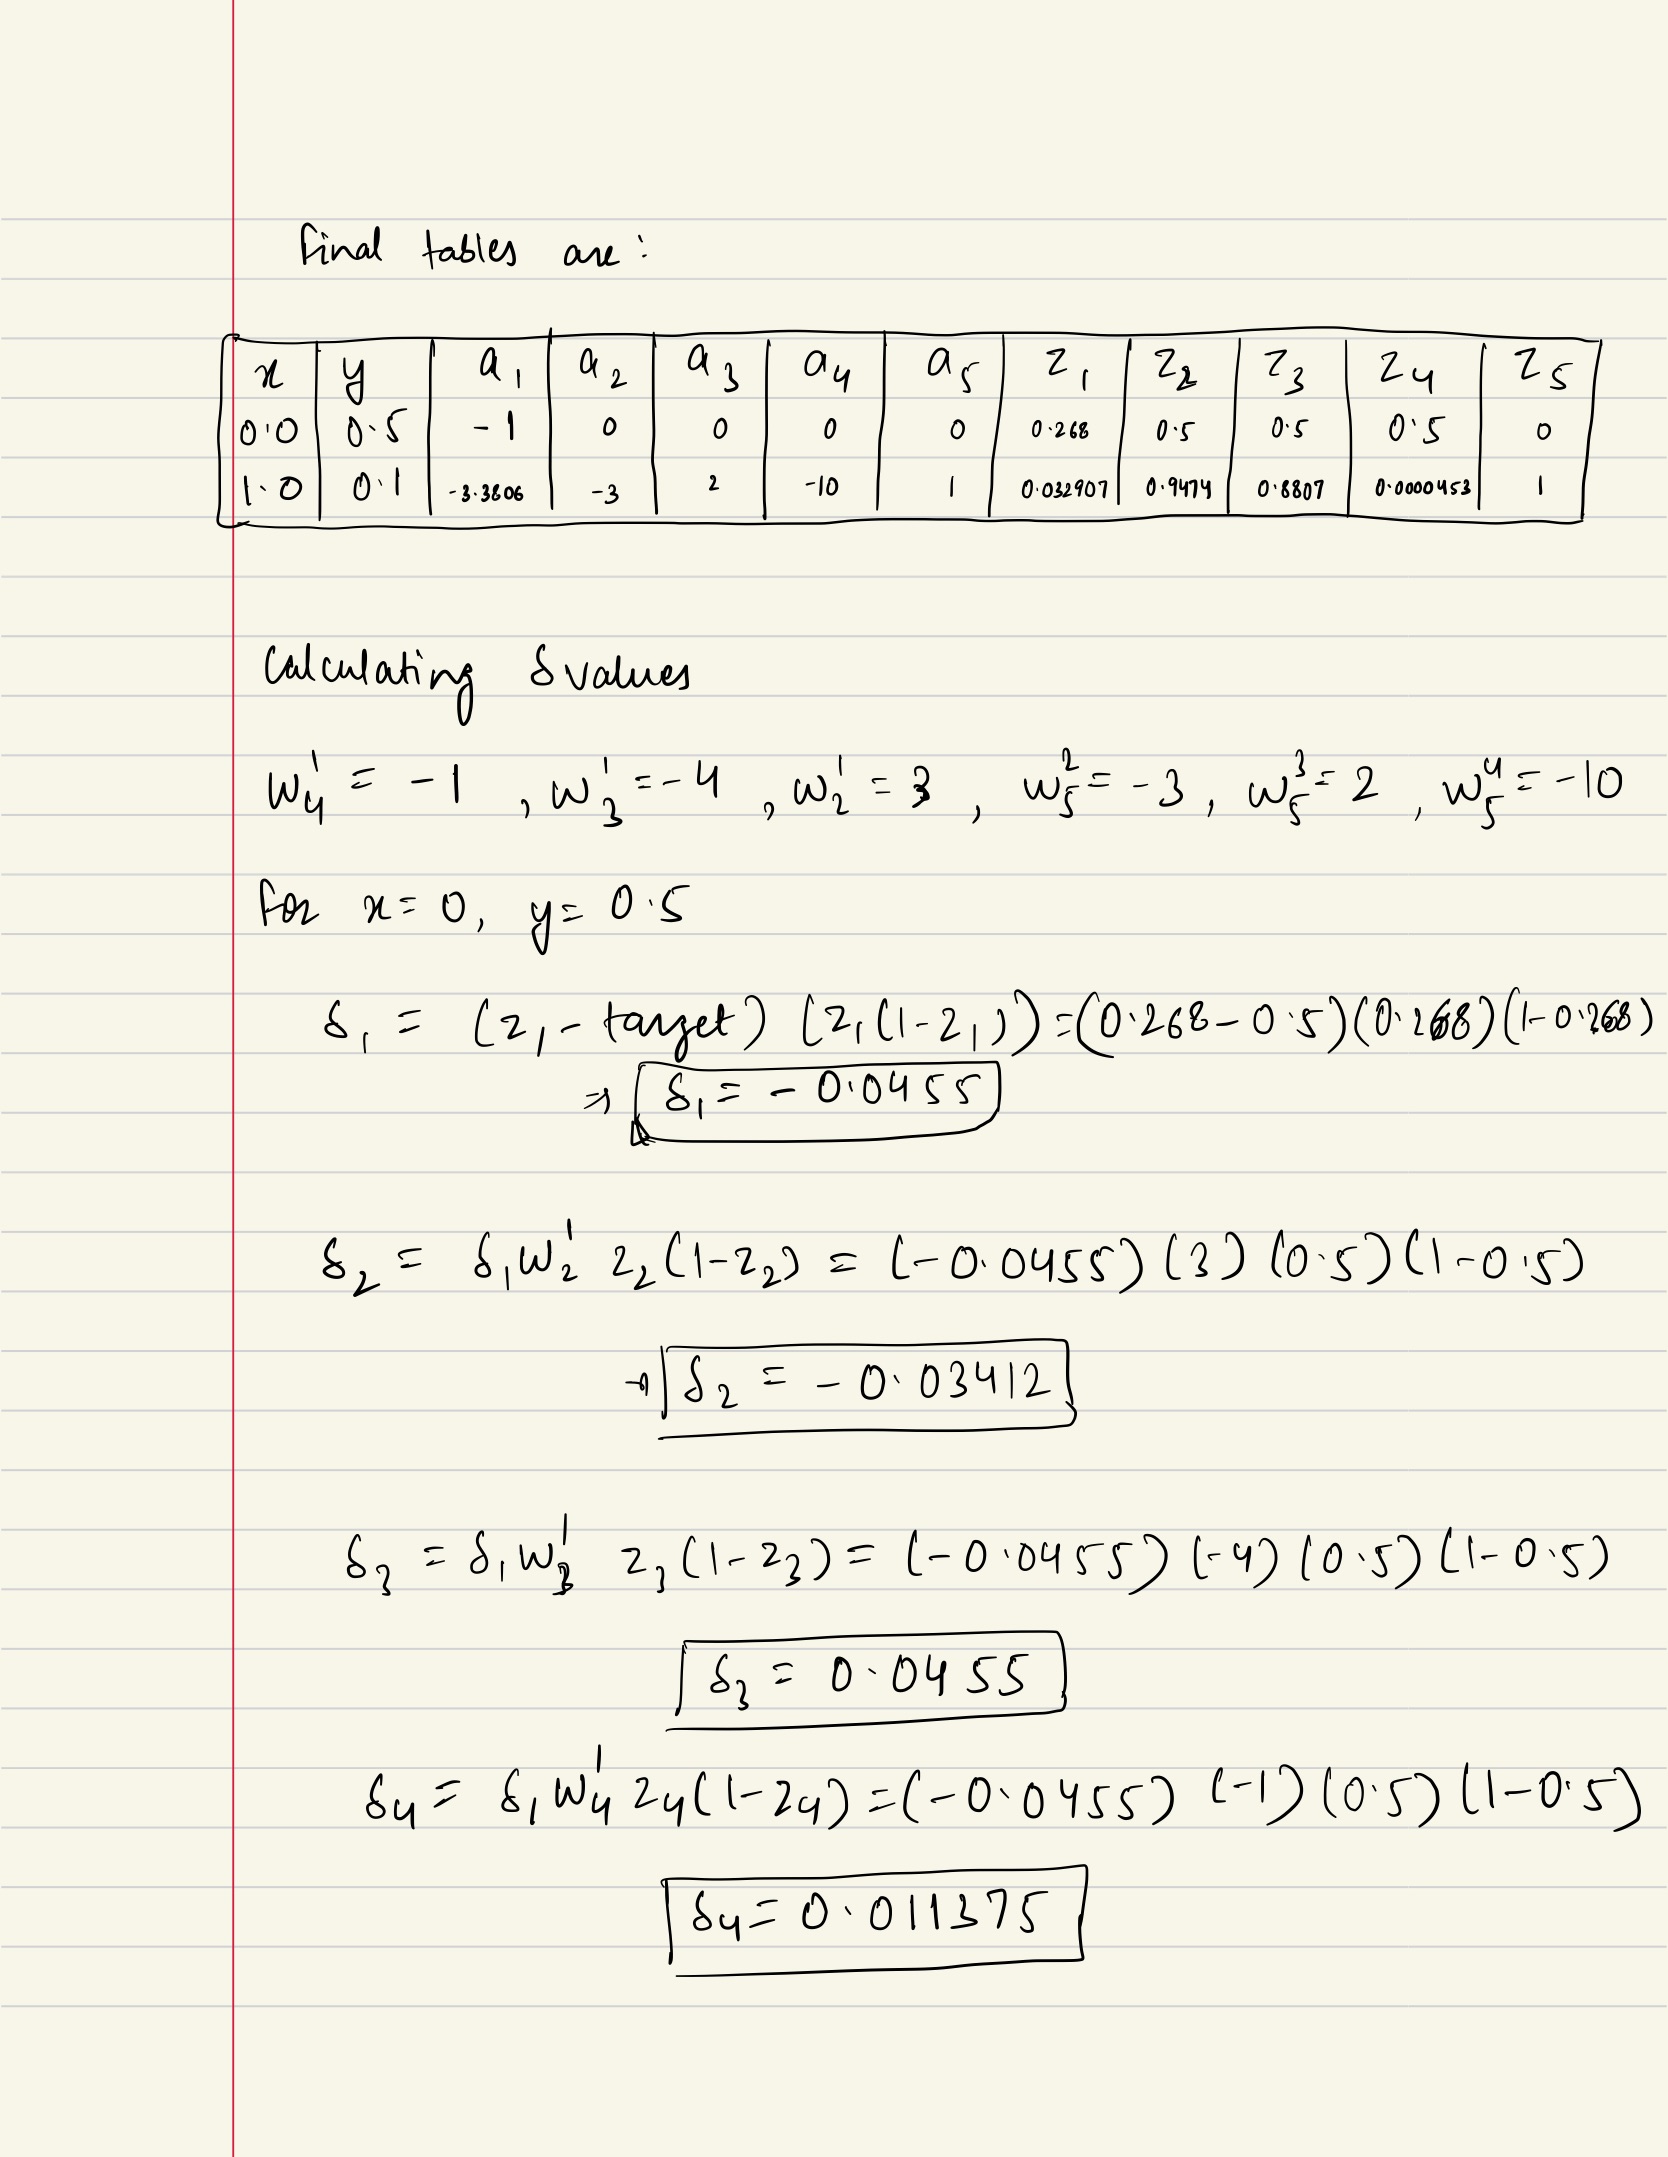 Final tables are:
x y a₁ a₂ a₃ a₄ a₅ z₁ z₂ z₃ z₄ z₅
0.0 0.5 -1 0 0 0 0 0.268 0.5 0.5 0.5 0
1.0 0.1 -3.3806 -3 2 -10 1 0.032907 0.9474 0.8807 0.0000453 1
Calculating δ values
w₄¹ = -1 , w₃¹ = -4 , w₂¹ = 3 , w₅² = -3 , w₅³ = 2 , w₅⁴ = -10
For x = 0, y = 0.5
δ₁ = (z₁ - target) (z₁(1-z₁)) = (0.268 - 0.5)(0.268)(1-0.268)
⇒ δ₁ = -0.0455
δ₂ = δ₁w₂¹ z₂(1-z₂) = (-0.0455)(3)(0.5)(1-0.5)
→ δ₂ = -0.03412
δ₃ = δ₁w₃¹ z₃(1-z₃) = (-0.0455)(-4)(0.5)(1-0.5)
δ₃ = 0.0455
δ₄ = δ₁w₄¹ z₄(1-z₄) = (-0.0455)(-1)(0.5)(1-0.5)
δ₄ = 0.011375